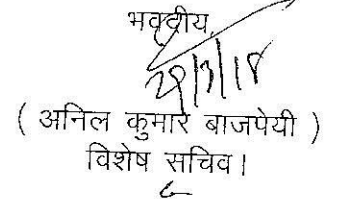 भवदीय,
28/3/18
( अनिल कुमार बाजपेयी )
विशेष सचिव।